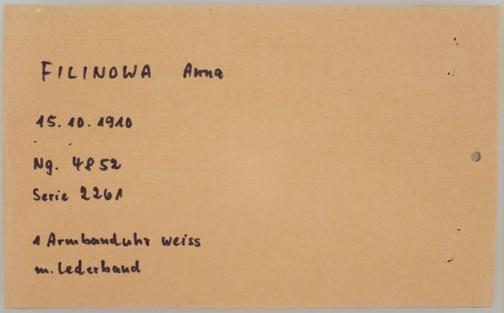 FILINOWA Anna
15.10.1910
Ng. 4852
Serie 2261
1 Armbanduhr weiss
m. Lederband